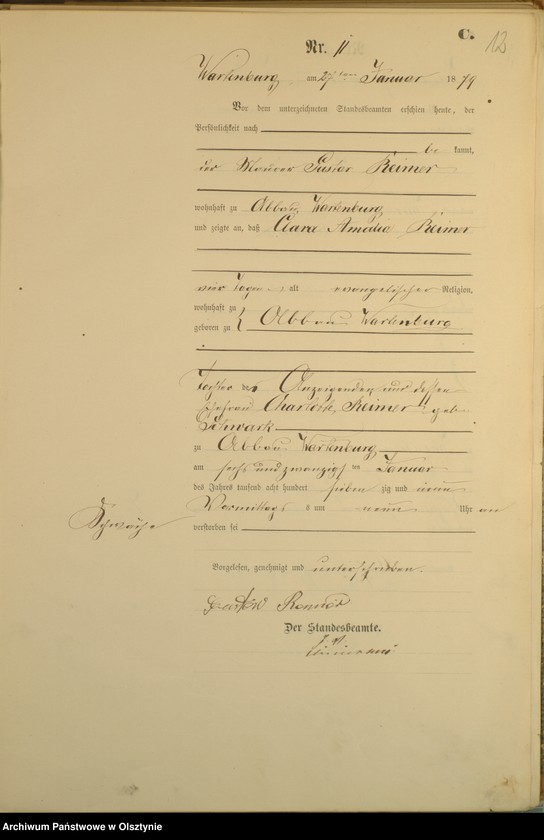 C.
12
Nr. 11
Wartenburg, am 27ten Januar 1879
Vor dem unterzeichneten Standesbeamten erschien heute, der
Persönlichkeit nach
be kannt,
der Maurer Gustav Reimer
wohnhaft zu Abbau Wartenburg
und zeigte an, daß Clara Amalia Reimer
vier Tage alt evangelischer Religion,
wohnhaft zu
geboren zu Abbau Wartenburg
Tochter des Anzeigenden und dessen
Ehefrau Charlotte Reimer geb
Schwark
zu Abbau Wartenburg
am sechsundzwanzigten Januar
des Jahres tausend acht hundert sieben zig und neun
Vormittags um neun Uhr an
Schwäche
verstorben sei
Vorgelesen, genehmigt und unterschrieben.
Gustav
Der Standesbeamte.
Archiwum Państwowe w Olsztynie